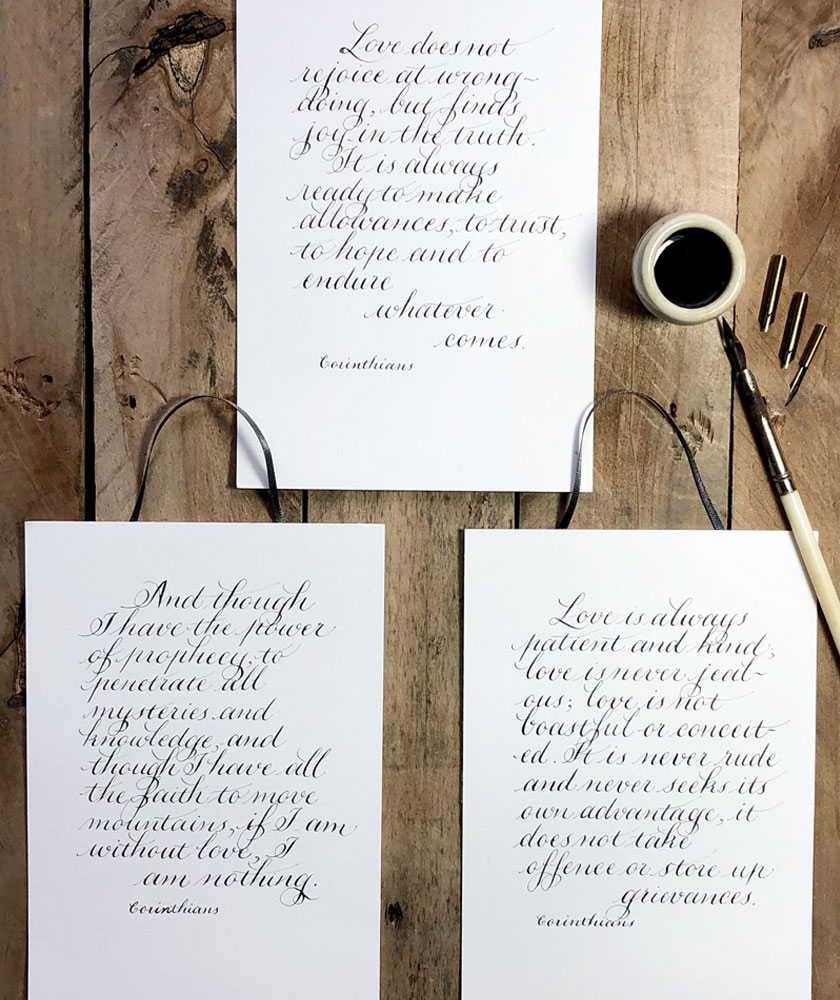 Love does not
rejoice at wrong~
doing, but finds
joy in the truth.
It is always
ready to make
allowances, to trust,
to hope and to
endure
whatever
comes.
Corinthians
And though
I have the power
of prophecy, to
penetrate all
mysteries and
knowledge, and
though I have all
the faith to move
mountains, if I am
without love, I
am nothing.
Corinthians
Love is always
patient and kind;
love is never jeal-
ous; love is not
boastful or conceit-
ed. It is never rude
and never seeks its
own advantage, it
does not take
offence or store up
grievances.
Corinthians